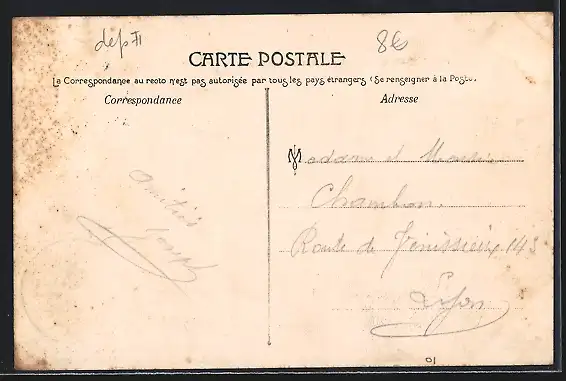 dép II
8€
CARTE POSTALE
La Correspondance au recto n'est pas autorisée par tous les pays étrangers (Se renseigner à la Poste.
Correspondance
Adresse
Madame et Monsieur
Chambon.
Route de Vénissieux 143
Lyon
Amitiés
Joseph
01